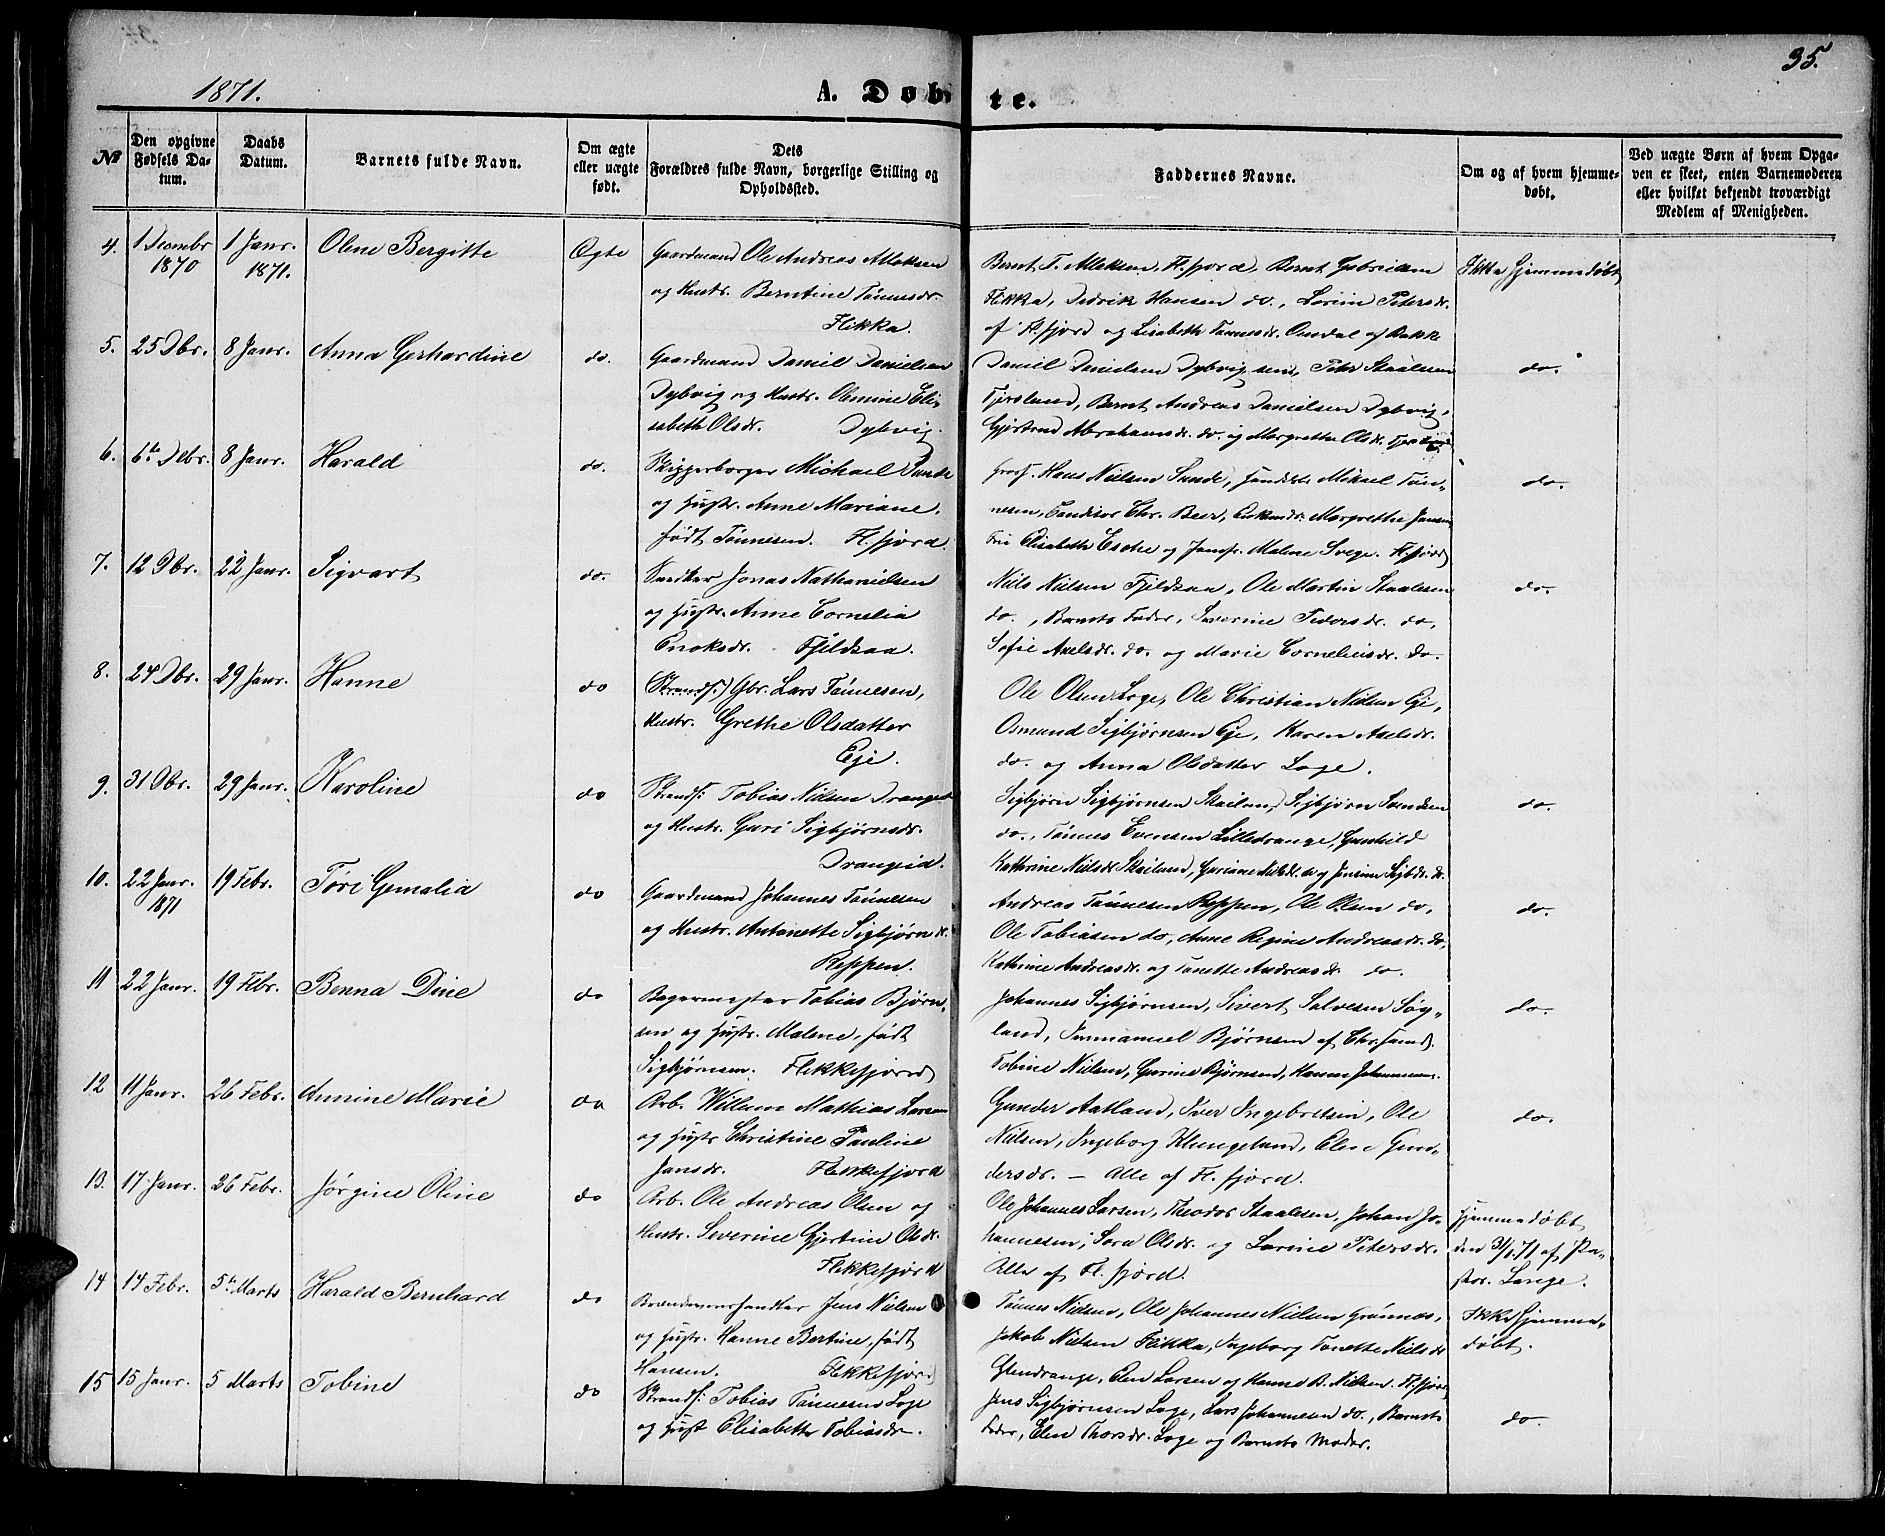 35.
1871.
A. Døbte.
No
Den opgivne Fødsels Datum.
Daabs Datum.
Barnets fulde Navn.
Om ægte eller uægte født.
Dets Forældres fulde Navn, borgerlige Stilling og Opholdssted.
Faddernes Navne.
Om og af hvem hjemmedøbt.
Ved uægte Børn af hvem Opgaven er skeet, enten Barnemoderen eller hvilket bekjendt troværdigt Medlem af Menigheden.
4. 1 Decembr 1870 1 Janr. 1871. Olene Bergitte Ægte
Gaardmand Ole Andreas Alleksen
og Hustr. Berntine Tønnesdr.
Flikka.
Bernt T. Alleksen, Fl.fjord, Bernt Gabrielsen
Flikka, Dedrik Hansen do., Lorine Petersdr.
af Fl.fjord og Lisabeth Tønnesdr. Omdal af Bakke
Ikke hjemmedøbt
5. 25 Dbr. 8 Janr. Anna Gerhardine do.
Gaardmand Daniel Danielsen
Dybvig og Hustr. Olemine Eli-
sabeth Olsdr. Dybvig.
Daniel Danielsen Dybvig sen., Peder Staalesen
Tjersland, Bernt Andreas Danielsen Dybvig,
Gjertrud Abrahamsdr. do. og Margrethe Olsdr. Tjersland
do.
6. 6te Dbr. 8 Janr. Harald do.
Skipperborger Michael Sunde
og Hustr. Anne Mariane,
født Tønnesen. Fl.fjord.
Hans Nielsen Sunde, Mikael Tøn-
nesen, Chr. Beer, Margrethe Jansen
Elisabeth Esche og Malene Svege. Fl.fjord
do.
7. 12 Dbr. 22 Janr. Sigvart do.
Snedker Jonas Nathanielsen
og Hustr. Anne Cornelia
Enoksdr. Fjeldsaa.
Niels Nielsen Fjeldsaa, Ole Martin Staalesen
do., Barnets Fader, Severine Pedersdr. do,
Sofie Axelsdr. do. og Marie Corneliusdr. do.
do.
8. 24 Dbr. 29 Janr. Hanne do
(Strands.) Gbr. Lars Tønnesen,
Hustr. Grethe Olsdatter
Eje.
Ole Olsen Loge, Ole Christian Nielsen Eje,
Osmund Sigbjørnsen Eje, Karen Axelsdr.
do. og Anna Olsdatter Loge.
9. 31 Dbr. 29 Janr. Karoline do
Strands: Tobias Nielsen Drangeid
og Hustr. Guri Sigbjørnsdr.
Drangeid.
Sigbjørn Sigbjørnsen Skailand, Sigbjørn Svendsen
do., Tønnes Evensen Lilledrange, Gunhild
Kathrine Nielsdr. Skailand, Guriane Nielsdr. do. og Jensine Sigbdr. do.
do.
10. 22 Janr. 1871 19 Febr. Tøri Gemalia do
Gaardmand Johannes Tønnesen
og Hustr. Antonette Sigbjørnsdr.
Reppen.
Andreas Tønnesen Reppen, Ole Olsen do,
Ole Tobiasen do, Anne Regine Andreasdr. do,
Kathrine Andreasdr. og Tonette Andreasdr. do.
do.
11 22 Janr. 19 Febr. Benna Dine do
Bagermester Tobias Bjørn-
sen og Hustr. Malene, født
Sigbjørnsen. Flekkefjord
Johannes Sigbjørnsen, Sivert Salvesen Søg-
land, Immanuel Bjørnsen af Chr.sand.
Tobine Nielsen, Gurine Bjørnsen, Hanna Johannesen.
do.
12 11 Janr. 26 Febr. Annine Marie do
Arb. Willum Mathias Larsen
og Hustr Christine Pauline
Jansdr. Flekkefjord
Gunder Aatland, Iver Ingebretsen, Ole
Nielsen, Ingeborg Klungeland, Elene Gun-
dersdr. — Alle af Fl.fjord.
do.
13. 17 Janr. 26 Febr. Jørgine Oline do
Arb. Ole Andreas Olsen og
Hustr. Severine Gjertine Olsdr.
Flekkefjord
Ole Johannes Larsen, Theodor Staalesen, Johan Jo-
hannesen, Sara Olsdr. og Lorine Petersdr.
Alle af Fl.fjord.
Hjemmedøbt
den 31/1 71 af Pa-
stor Lange.
14 14 Febr. 5te Marts Harald Bernhard do
Brændeviinshandler Jens Nielsen
og Hustr. Hanne Bertine, født
Hansen. Flekkefjord
Tønnes Nielsen, Ole Johannes Nielsen Grønnes,
Jakob Nielsen Flikka, Ingeborg Tonette Nielsdr
Glendrange, Elen Larsen og Hanne B. Nielsen. Fl.fjord
Ikke hjemme-
døbt.
15 15 Janr. 5 Marts Tobine do
Strands: Tobias Tønnesen Loge
og Hust Elisabeth Tobiasdr.
Jens Sigbjørnsen Loge, Lars Johannesen do., Barnets
Fader, Elen Thorsdr. Loge og Barnets Moder.
do.